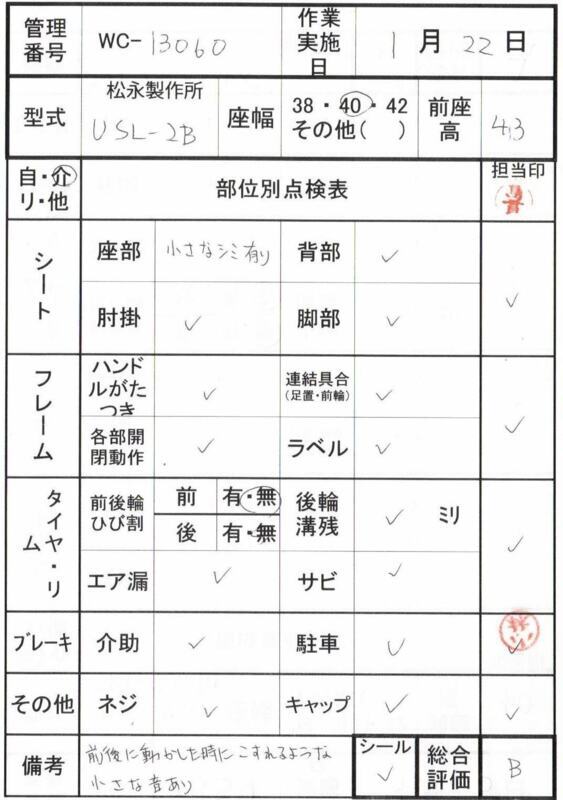 管理番号 WC-13060 作業実施日 1月22日
型式 松永製作所 USL-2B 座幅 38・40・42 その他( ) 前座高 43
自・介 リ・他 部位別点検表 担当印
シート 座部 小さなシミ有り 背部 ✓
肘掛 ✓ 脚部 ✓ ✓
フレーム ハンドルがたつき ✓ 連結具合(足置・前輪) ✓
各部開閉動作 ✓ ラベル ✓ ✓
タイヤ・リム 前後輪ひび割 前 有・無 後輪溝残 ✓ ミリ
後 有・無
エア漏 ✓ サビ ✓ ✓
ブレーキ 介助 ✓ 駐車 ✓ ✓
その他 ネジ ✓ キャップ ✓ ✓
備考 前後に動かした時にこすれるような
小さな音あり
シール ✓ 総合評価 B